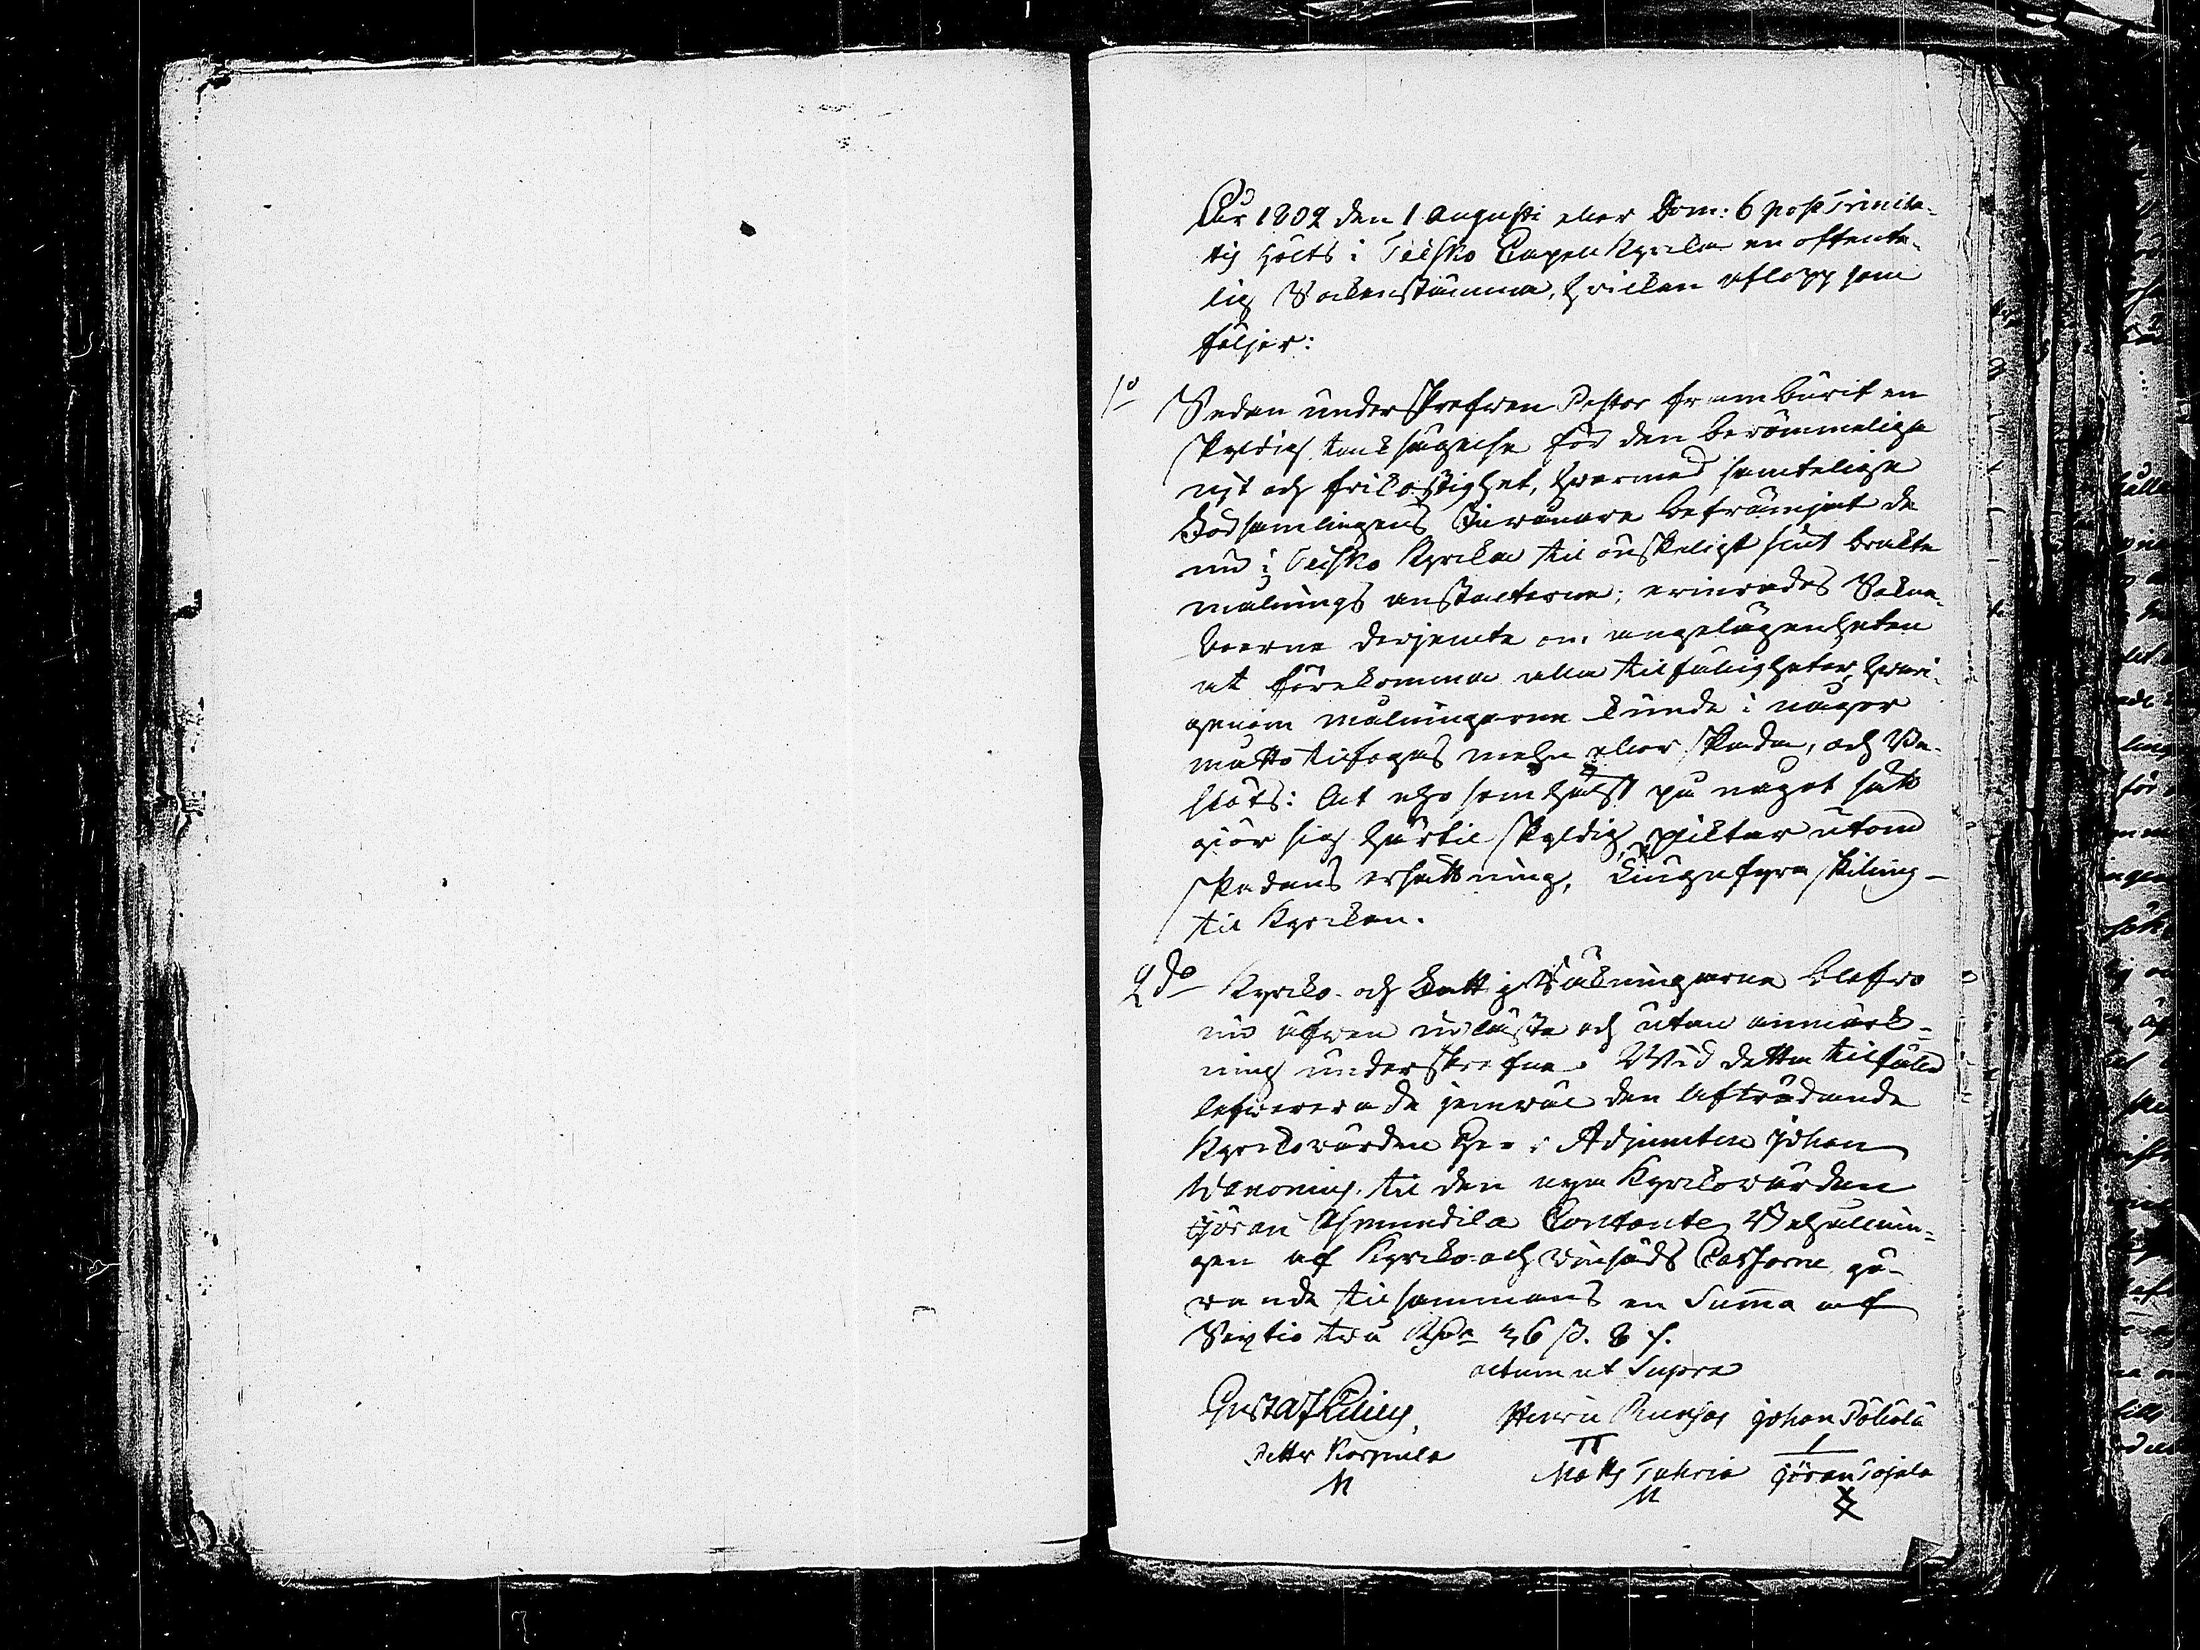 Åhr 1802 den 1 Augusti eller Dom: 6 post Trinita-
tis hölts i Teisko Capell Kyrka en offente-
lig Sockenstämma, hvilken aflopp som
följer:
1o Sedan underskrefven Pastor framburit en
skyldig tacksägelse för den berömmeliga
nit och frikostighet, hvarmed samtelige
Församlingens Invånare befrämjat de
nu i Teisko Kyrka til önskeligt slut brakte
målnings anstalterne; erinrades Sokne-
boerne derjemte om angelägenheten
at förekomma alla tilfälligheter, hvari-
genom målningarne kunde i någor
motto tilfogas mehn eller skada, och be-
slöts: At eho som hälst på något sätt
giör sig härtil skyldig, pliktar utom
skadans ersättning, tiugufyra skilling
til Kyrkan.
2do Kyrko- och Fattig Räkningarna blefvo
nu äfven upläste och utan anmärk-
ning underskrefne. Wid detta tilfälle
lefvererade jemväl den afträdande
Kyrkovärden Herr Adjuncten Johan
til den nya Kyrkovärden
Göran Contante Behållnin-
gen af Kyrko och Cassorne, gö-
rande tilsammans en Summa af
Sextio två Rdr 36 s. 8 r.
actum ut Supra
Gustaf
Henric Johan
Petter Korpula
Matts Göran